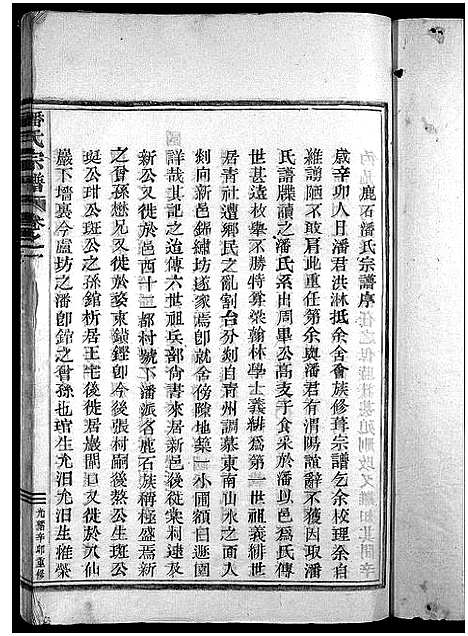 鹿石潘氏宗譜序
歲辛卯人日潘君洪淋抵余舍會族修葺宗譜乞余校理余自
維譾陋不敢肩此重任第余與潘君有渭陽誼辭不獲因取潘
氏譜牒讀之潘氏系出周畢公高支子食采於潘以邑為氏傳
世甚遠枚舉不勝特尊梁翰林學士義緋為第一世義緋世
居青社遭鄉民之亂割台分剡自青州調慕東南山水之而入
剡向新邑錦繡坊遂家焉卽就舍傍隙地築一小圃額曰遯園
詳哉其記之迨傳六世祖兵部尚書來居新邑後徙棠利逮及
新公又徙於邑西十二都村號下潘派名鹿石族稱極盛焉新
之曾孫懋兄又徙於婺東鎮鏗卽今後張村嗣後熬公生斑公
珽公玵公斑公之孫錧析居王宅後徙居巖閘口又徙於大仙
巖下墻裏今盧坊之潘卽錧之曾孫也琯生光汨光汨生維榮
潘氏宗譜
卷之一
光緒辛卯重修